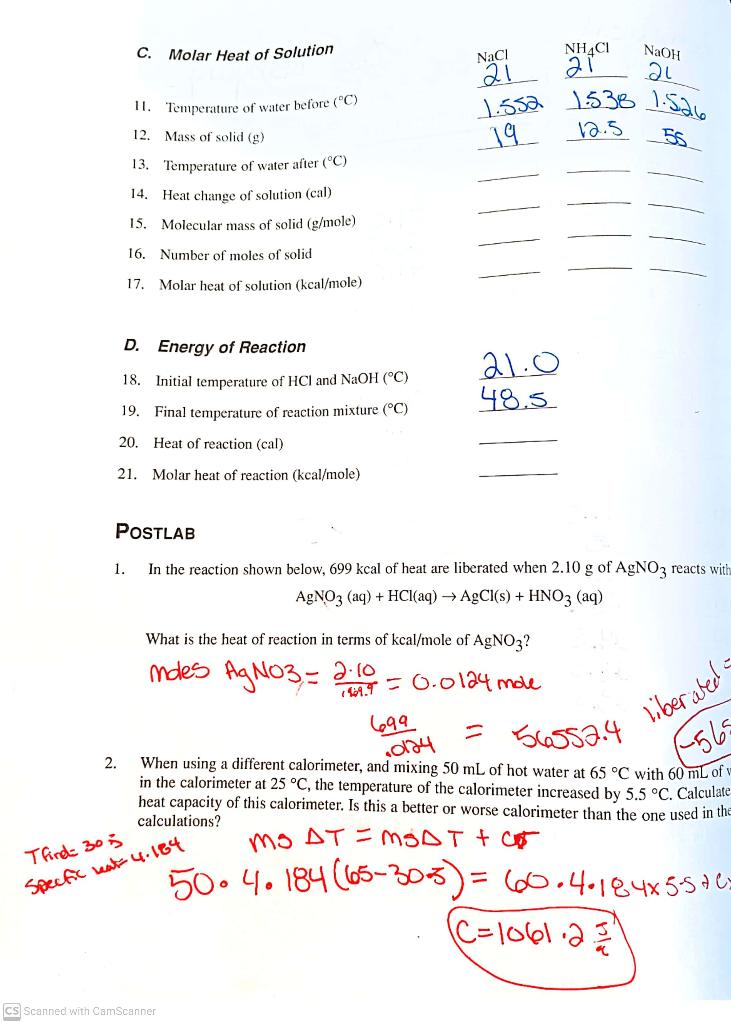 C. Molar Heat of Solution
NaCl NH4Cl NaOH
11. Temperature of water before (°C) 21 21 21
12. Mass of solid (g) 1.552 1.538 1.526
13. Temperature of water after (°C) 19 12.5 55
14. Heat change of solution (cal)
15. Molecular mass of solid (g/mole)
16. Number of moles of solid
17. Molar heat of solution (kcal/mole)
D. Energy of Reaction
18. Initial temperature of HCl and NaOH (°C) 21.0
19. Final temperature of reaction mixture (°C) 48.5
20. Heat of reaction (cal)
21. Molar heat of reaction (kcal/mole)
POSTLAB
1. In the reaction shown below, 699 kcal of heat are liberated when 2.10 g of AgNO3 reacts with
AgNO3 (aq) + HCl(aq) → AgCl(s) + HNO3 (aq)
What is the heat of reaction in terms of kcal/mole of AgNO3?
moles AgNO3 = 2.10 / 169.9 = 0.0124 mole
699 / .0124 = 56552.4 liberated =
-565
2. When using a different calorimeter, and mixing 50 mL of hot water at 65 °C with 60 mL of
in the calorimeter at 25 °C, the temperature of the calorimeter increased by 5.5 °C. Calculate
heat capacity of this calorimeter. Is this a better or worse calorimeter than the one used in the
calculations?
Tfinal= 30.5
specific heat= 4.184
ms ΔT = msΔT +
50. 4.184 (65-30.5) = 60.4.184x5.5+
C=1061.2
CS Scanned with CamScanner